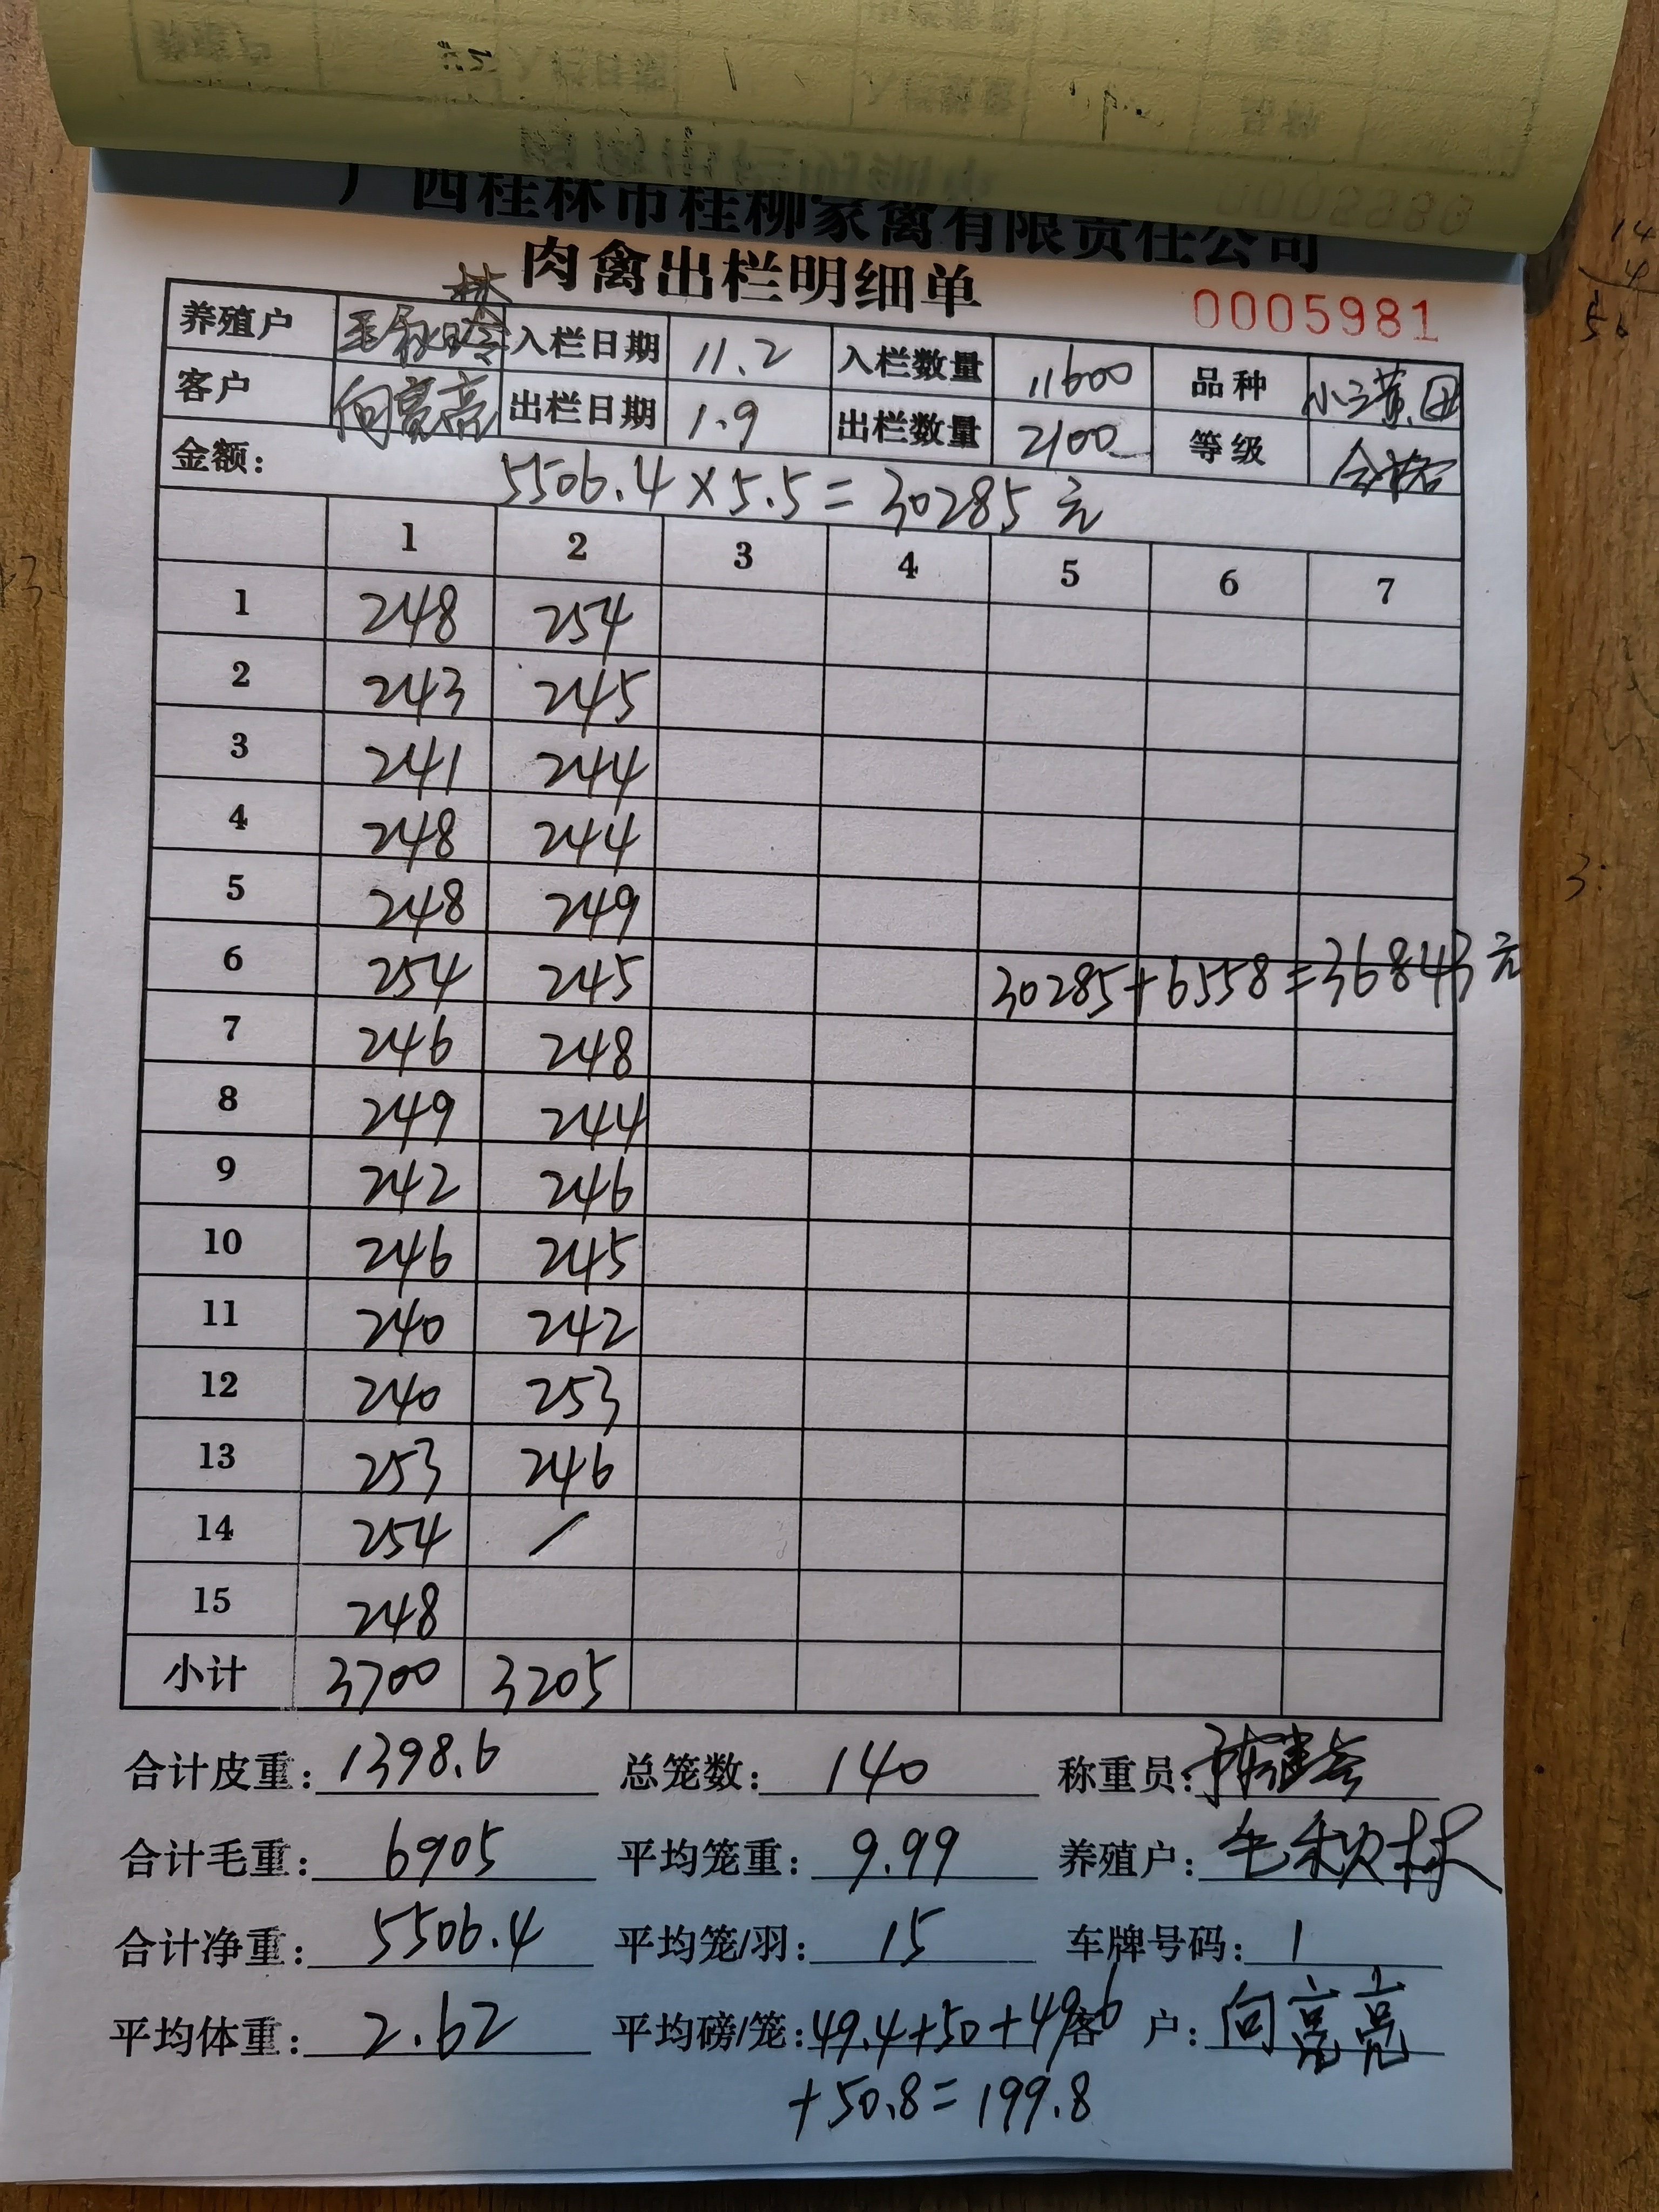 广西桂林市桂柳家禽有限责任公司
肉禽出栏明细单
0005981
林
养殖户 毛秋玲 入栏日期 11.2 入栏数量 11600 品种 小三黄、团
客户 向亮亮 出栏日期 1.9 出栏数量 2100 等级 合格
金额: 5506.4×5.5=30285元
1 2 3 4 5 6 7
1 248 254
2 243 245
3 241 244
4 248 244
5 248 249
6 254 245 30285+6558=36843元
7 246 248
8 249 244
9 242 246
10 246 245
11 240 242
12 240 253
13 253 246
14 254 /
15 248
小计 3700 3205
合计皮重: 1398.6 总笼数: 140 称重员:
合计毛重: 6905 平均笼重: 9.99 养殖户: 毛秋林
合计净重: 5506.4 平均笼/羽: 15 车牌号码: 1
平均体重: 2.62 平均磅/笼: 49.4+50+49.6 客户: 向亮亮
+50.8=199.8